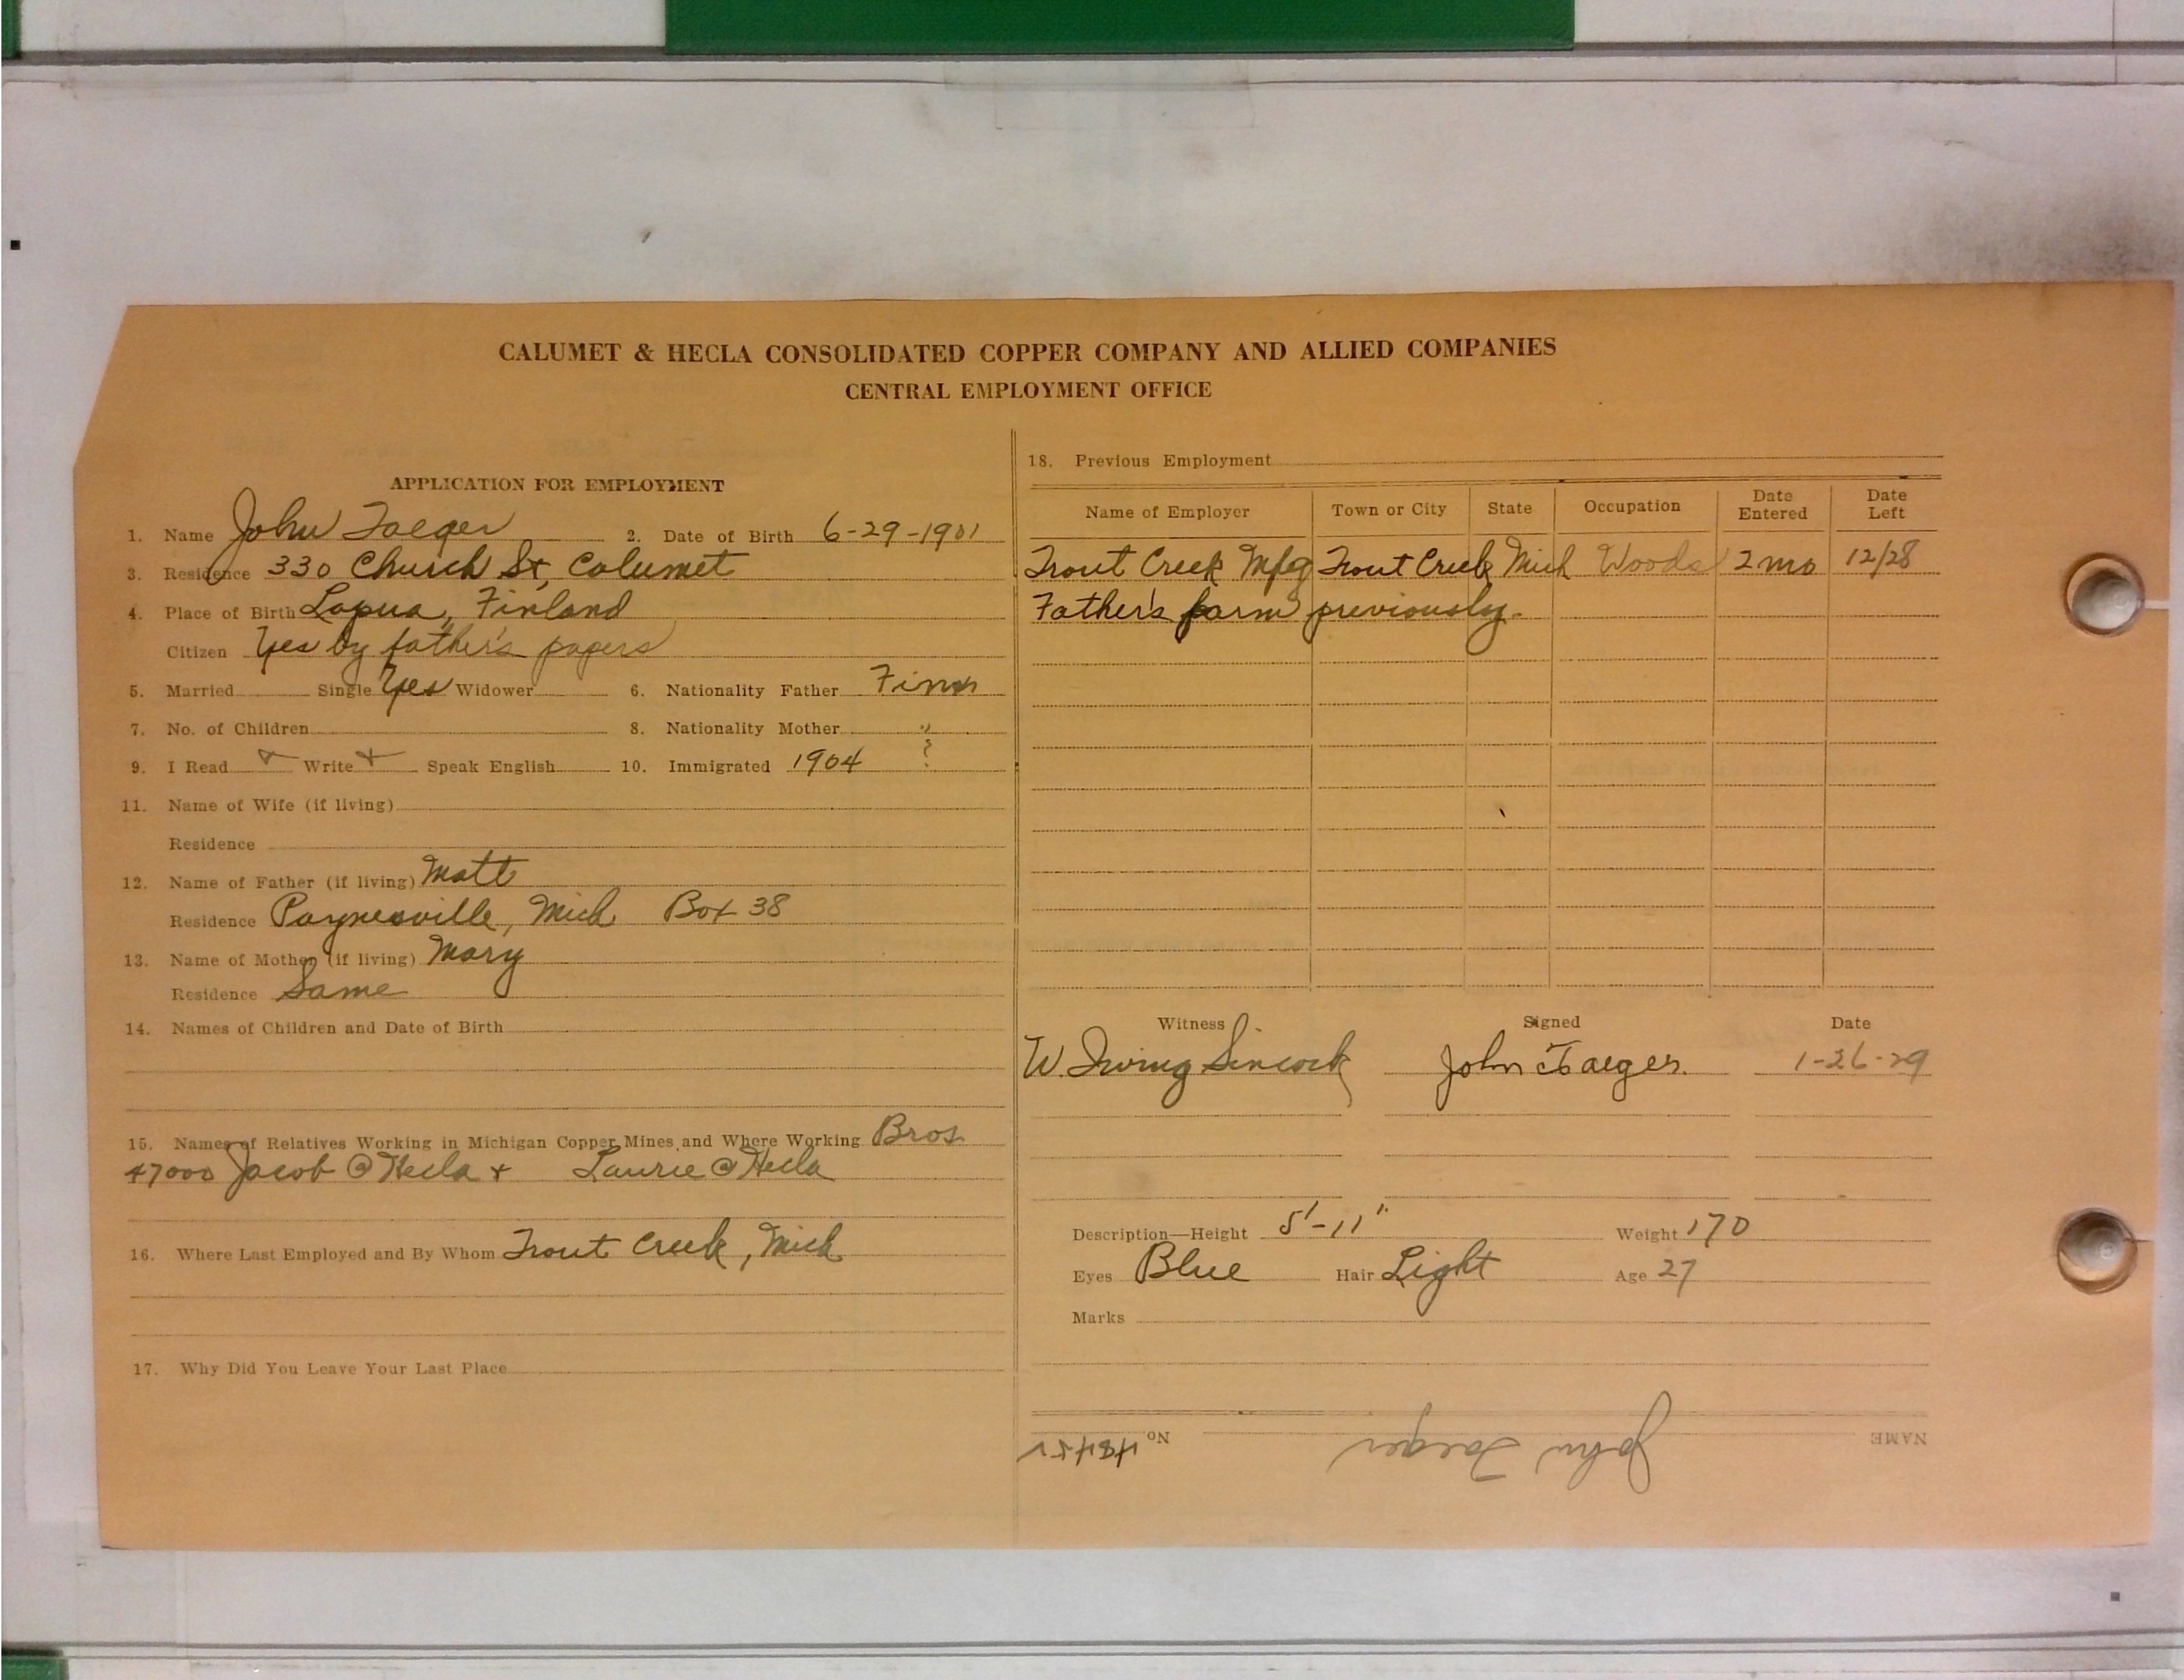 CALUMET & HECLA CONSOLIDATED COPPER COMPANY AND ALLIED COMPANIES
CENTRAL EMPLOYMENT OFFICE
APPLICATION FOR EMPLOYMENT
1. Name John Jaeger 2. Date of Birth 6-29-1901
3. Residence 330 Church St, Calumet
4. Place of Birth Lapua, Finland
Citizen Yes by father's papers
5. Married Single Yes Widower 6. Nationality Father Finn
7. No. of Children 8. Nationality Mother "
9. I Read Write Speak English 10. Immigrated 1904 ?
11. Name of Wife (if living)
Residence
12. Name of Father (if living) Matt
Residence Paynesville, Mich Box 38
13. Name of Mother (if living) Mary
Residence Same
14. Names of Children and Date of Birth
15. Names of Relatives Working in Michigan Copper Mines and Where Working Bros
47000 Jacob @ Hecla + Laurie @ Hecla
16. Where Last Employed and By Whom Trout Creek, Mich
17. Why Did You Leave Your Last Place
18. Previous Employment
Name of Employer Town or City State Occupation Date Entered Date Left
Trout Creek Mfg Trout Creek Mich Woods 2 mo 12/28
Father's farm previously.
Witness Signed Date
W. Irving Sincock John Jaeger. 1-26-29
Description—Height 5'-11" Weight 170
Eyes Blue Hair Light Age 27
Marks
NAME John Jaeger No.